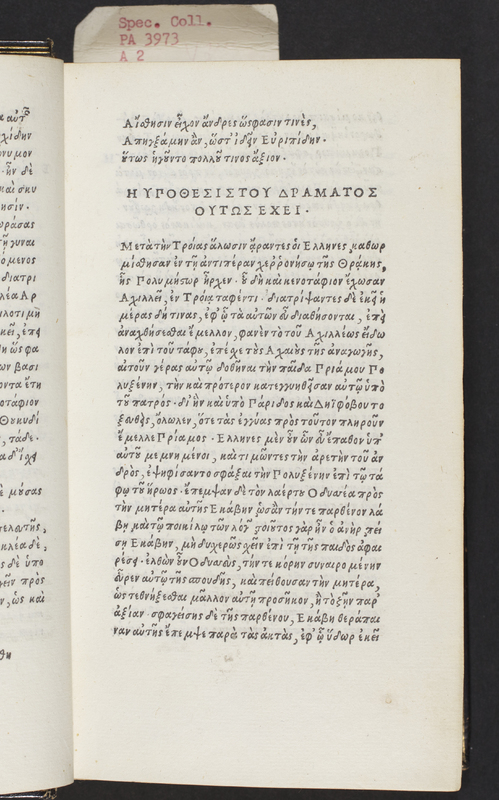 Spec. Coll.
PA 3973
A 2
Αἴσθησιν εἶχον ἄνδρες ὥς φασιν τινὲς,
Απηγξάμην ἂν, ὥστ' ἰδεῖν Εὐριπίδην.
οὕτως ἡγοῦντο πολλοῦ τινος ἄξιον.
Η ΥΠΟΘΕΣΙΣ ΤΟΥ ΔΡΑΜΑΤΟΣ
ΟΥΤΩΣ ΕΧΕΙ.
Μετὰ τὴν Τροίας ἅλωσιν ἄραντες οἱ Ελληνες, καθωρ
μίσθησαν ἐν τῇ ἀντιπέραν χερρονήσῳ τῆς Θράκης,
ἧς Πολυμήστωρ ἦρχεν. οὗ δὴ καὶ κενοτάφιον ἔχωσαν
Αχιλλεῖ, ἐν Τροίᾳ ταφέντι. διατρίψαντες δὲ ἐκεῖ ἡ
μέρας δή τινας, ἐφ' ᾧ τὰ αὐτῶν εὖ διαθήσονται, ἐπεὶ
ἀναχθήσεσθαι ἔμελλον, φανὲν τὸ τοῦ Αχιλλέως εἴδω
λον ἐπὶ τοῦ τάφου, ἐπέχε τοὺς Αχαιοὺς τῆς ἀναγωγῆς,
αἰτοῦν γέρας αὐτῷ δοθῆναι τὴν παῖδα Πριάμου Πο
λυξένην, τὴν καὶ πρότερον κατεγγυηθεῖσαν αὐτῷ ὑπὸ
τοῦ πατρός. δι' ἣν καὶ ὑπὸ Πάριδος καὶ Δηϊφόβου το
ξευθεὶς, ὄλωλεν, ὅτε τὰς ἐγγύας πρὸς τοῦτον πληροῦν
ἔμελλε Πρίαμος. Ελληνες μὲν οὖν ὧν εὖ ἔπαθον ὑπ'
αὐτοῦ μεμνημένοι, καὶ τιμῶντες τὴν ἀρετὴν τοῦ ἀν
δρὸς, ἐψηφίσαντο σφάξαι τὴν Πολυξένην ἐπὶ τῷ τά
φῳ τοῦ ἥρωος. ἔπεμψαν δὲ τὸν λαέρτου Οδυσέα πρὸς
τὴν μητέρα αὐτῆς Εκάβην, ὡς ἂν τήν τε παρθένον λά
βῃ, καὶ τῷ ποικίλῳ τῶν λόγων, τοιοῦτος γὰρ ἦν ὁ ἀνὴρ, πεί
σῃ Εκάβην, μὴ δυχερῶς ἔχειν ἐπὶ τῇ τῆς παιδὸς ἀφαι
ρέσει. ἐλθὼν οὖν Οδυσσεὺς, τήν τε κόρην συναιρομένην
εὗρεν αὐτῷ τῆς σπουδῆς, καὶ πείθουσαν τὴν μητέρα,
ὡς τεθνήξεσθαι μᾶλλον αὐτῇ προσῆκον, ἢ τὸ ζῆν παρ'
ἀξίαν. σφαγείσης δὲ τῆς παρθένου, Εκάβη θεράπαι
ναν αὐτῆς ἔπεμψε παρὰ τὰς ἀκτὰς, ἐφ' ᾧ ὕδωρ ἐκεῖ